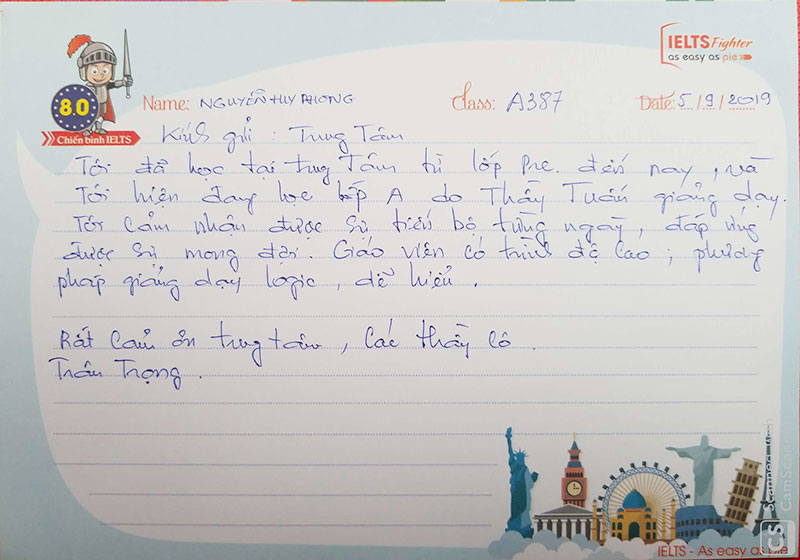 IELTS Fighter
as easy as pie
8.0
Chiến binh IELTS
Name: NGUYỄN HUY PHONG
Class: A387
Date: 5/9/2019
Kính gửi : Trung Tâm
Tôi đã học tại trung Tâm từ lớp Pre. đến nay, và
Tôi hiện đang học lớp A do Thầy Tuấn giảng dạy.
Tôi cảm nhận được sự tiến bộ từng ngày, đáp ứng
được sự mong đợi. Giáo viên có trình độ cao ; phương
pháp giảng dạy logic, dễ hiểu.
Rất cảm ơn trung tâm, các thầy cô.
Trân Trọng.
IELTS - As easy as pie
CS
Scanned with
CamScanner